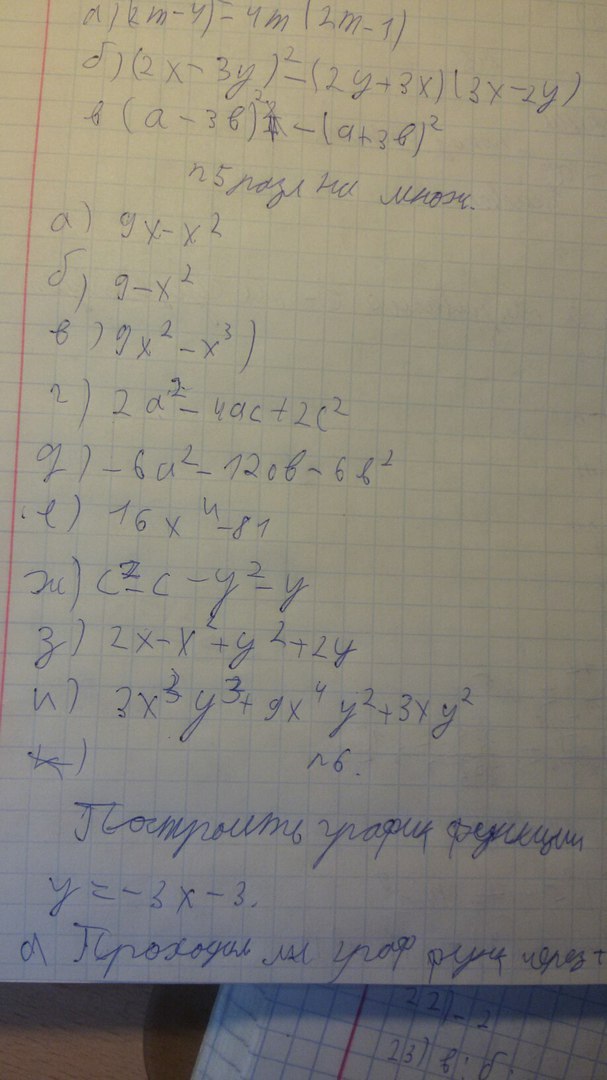 а) (2m-4)²-4m(2m-1)
б) (2x-3y)²-(2y+3x)(3x-2y)
в (a-3в)²-(a+3в)²
п5 разл на множ.
а) 9x-x²
б) 9-x²
в) 9x²-x³)
г) 2a²-4ac+2c²
д) -6a²-12ав-6в²
е) 16x⁴-81
ж) c²-c-y²-y
з) 2x-x²+y²+2y
и) 3x³y³+9x⁴y²+3xy²
к) п6.
Построить график функции
y=-3x-3.
а) Проходит ли граф функ через т
22) -2
23) в; б;